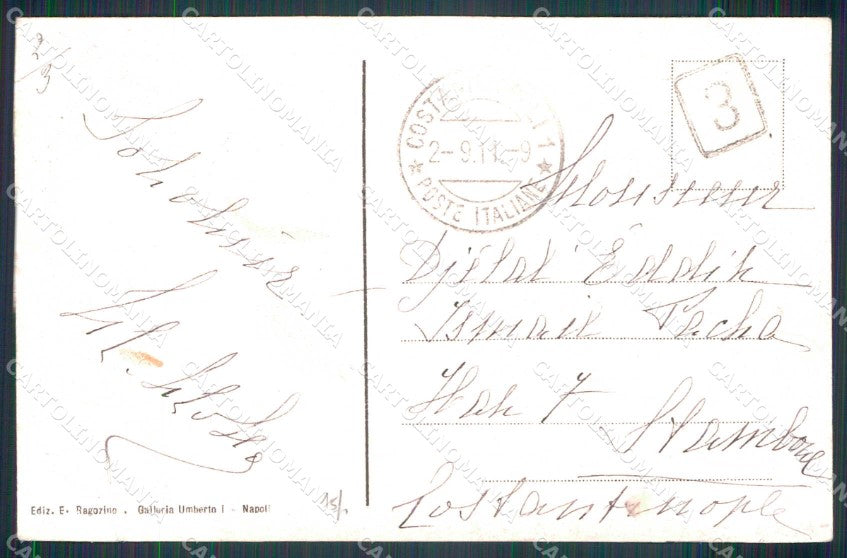 2/9
COSTANTINOPOLI 1
2-9.11.-9
★ POSTE ITALIANE ★
3
Monsieur
Djélal Eddin
Ismail Pacha
Han 7
Stamboul
Costantinople
Ediz. E. Ragozino . Galleria Umberto I - Napoli
15/.
CARTOLINOMANIA